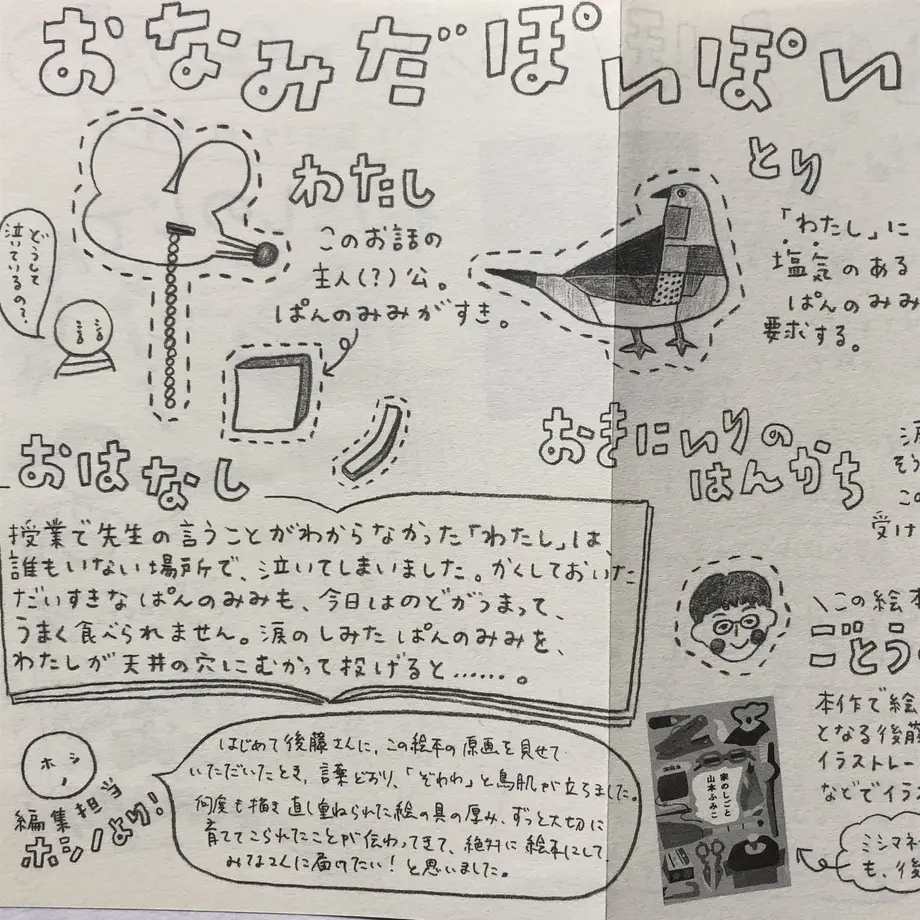 おなみだぽいぽい
わたし
このお話の
主人(?)公。
ぱんのみみがすき。
どうして
泣いているの?
とり
「わたし」に
塩気のある
ぱんのみみ
要求する。
おきにいりの
はんかち
涙
そう
この
受け
おはなし
授業で先生の言うことがわからなかった「わたし」は、
誰もいない場所で、泣いてしまいました。かくしておいた
だいすきなぱんのみみも、今日はのどがつまって、
うまく食べられません。涙のしみたぱんのみみを、
わたしが天井の穴にむかって投げると……。
\この絵本
ごとう
本作で絵
となる後藤
イラストレー
などでイラ
家のしごと
山本ふみこ
ミシマ
も、後
ホシノ
編集担当
ホシノより!
はじめて後藤さんに、この絵本の原画を見せて
いただいたとき、言葉どおり、「ぞわわ」と鳥肌が立ちました。
何度も描き直し重ねられた絵の具の厚み、ずっと大切に
育ててこられたことが伝わってきて、絶対に絵本にして
みなさんに届けたい!と思いました。